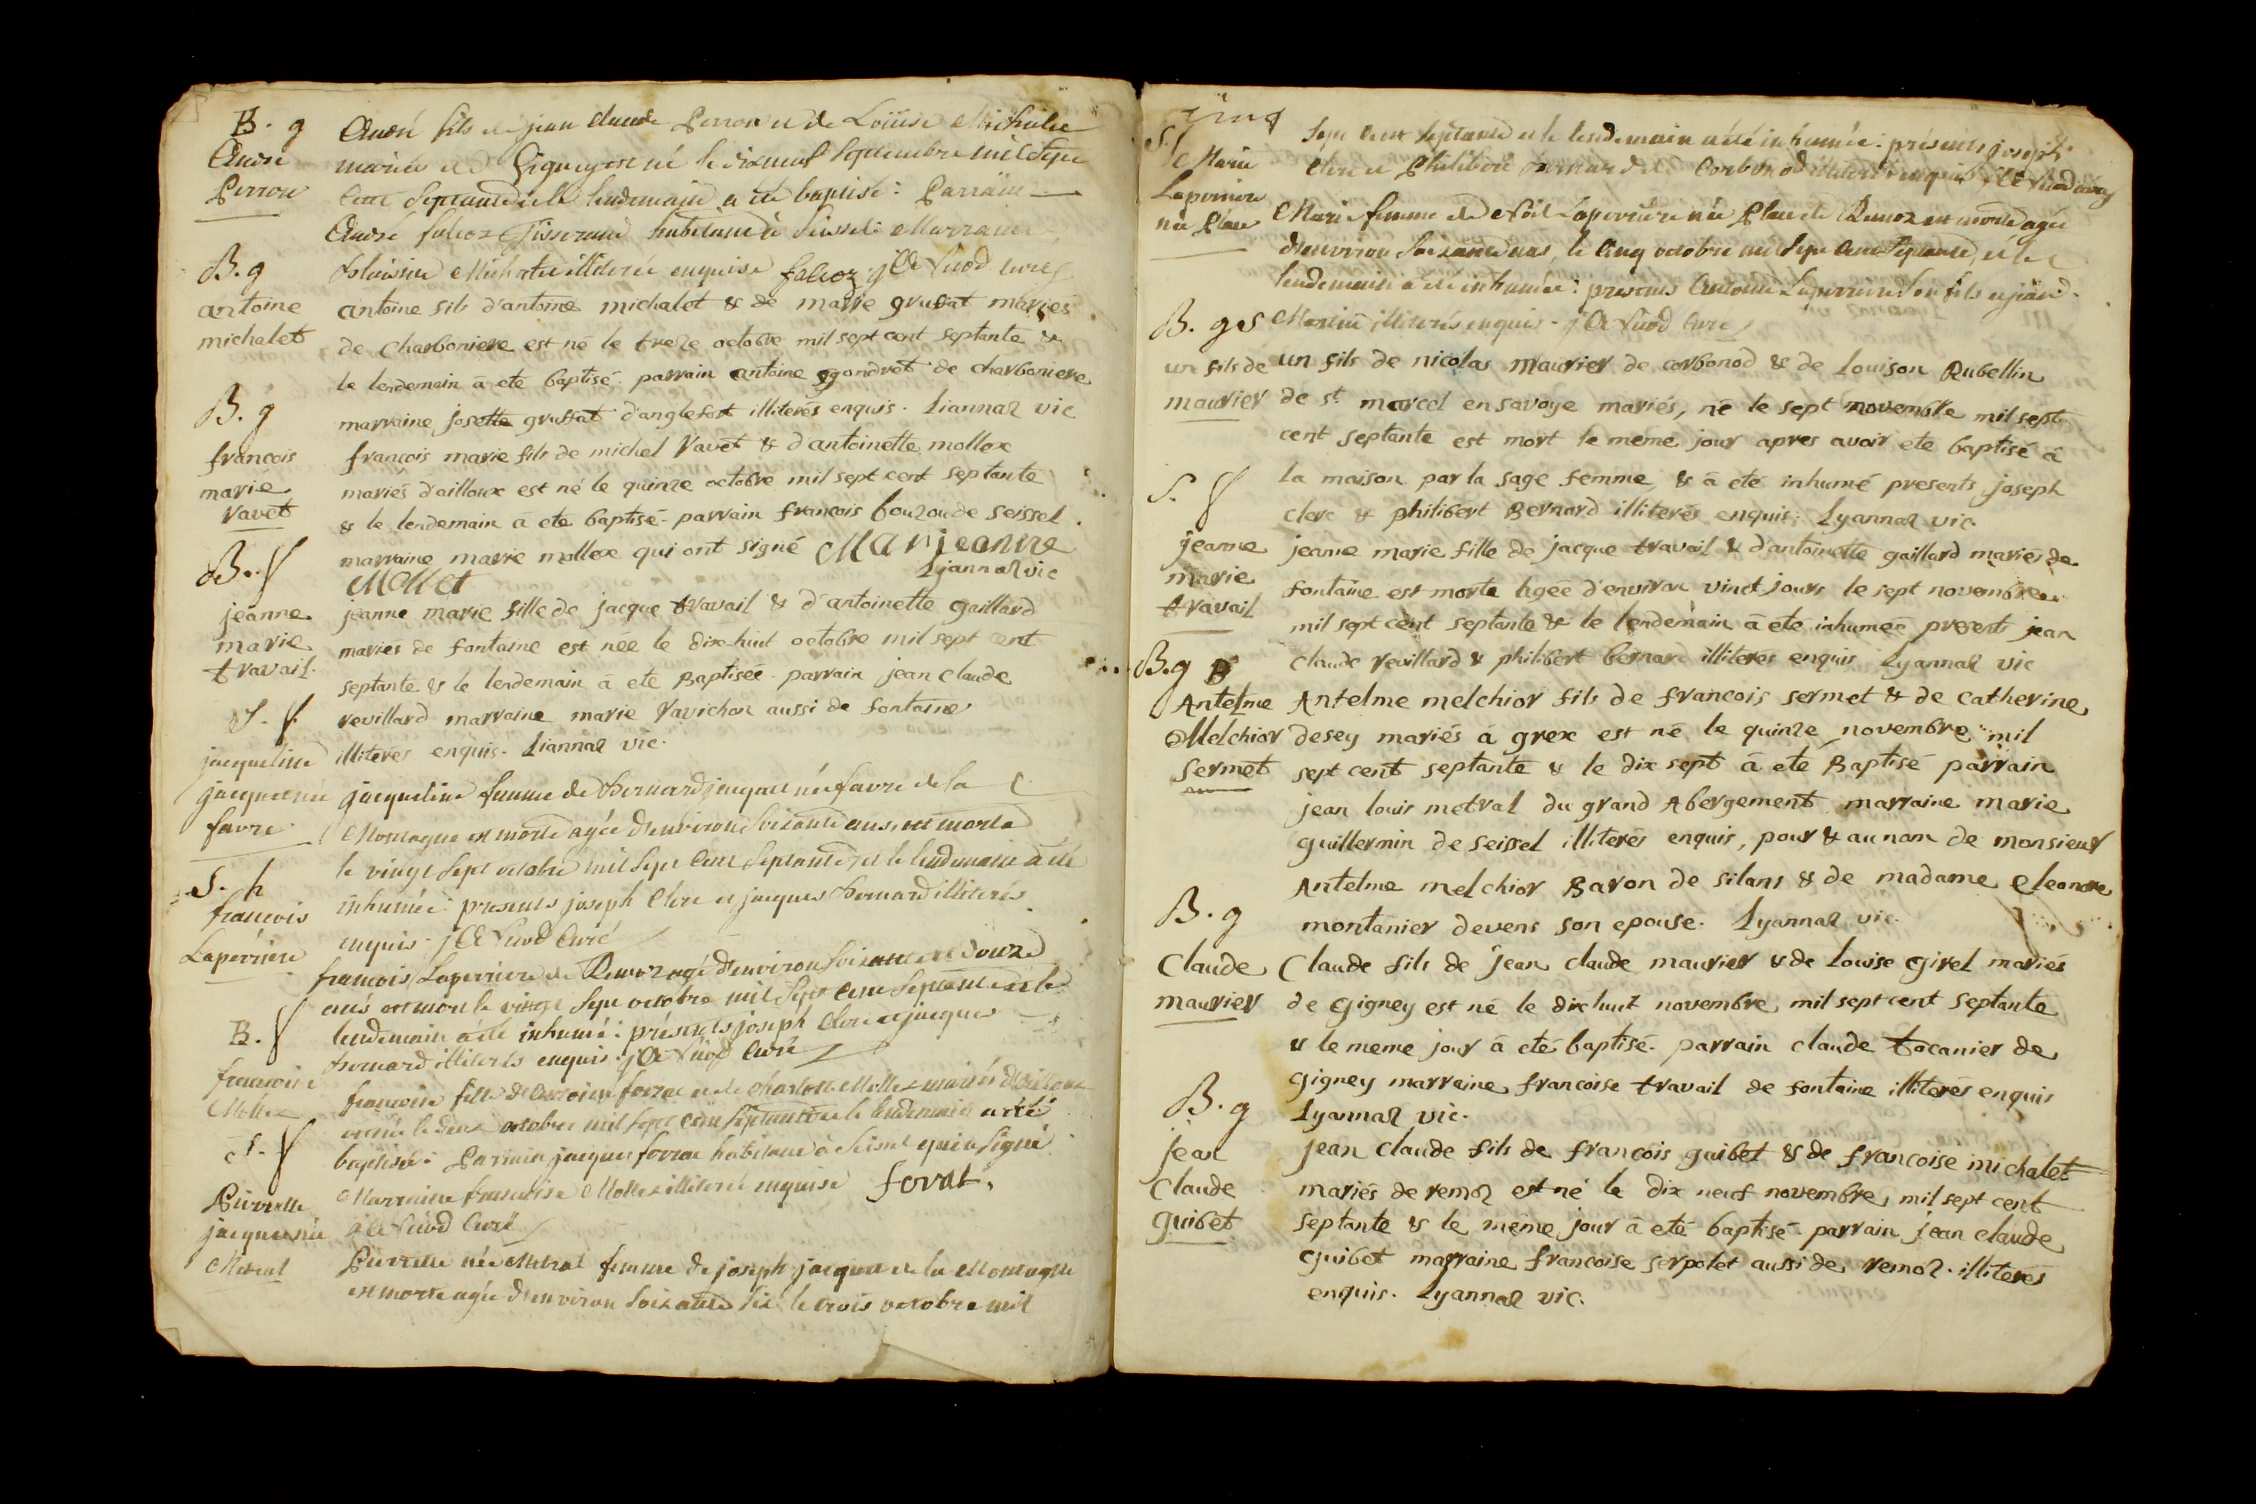 B. g
André
Perron
André fils de jean claude Perron et de Loüise Michalet
mariés de Gigney est né le dixneuf septembre mil sept
cent septante et le lendemain a été baptisé: Parrain
André falcoz Tisserand habitant à Seissel: Marraine
Michalet illiterée enquise falcoz jCl Suod curé
B. g
antoine
michalet
antoine fils d'antoine michalet & de marie grufat mariés
de charboniere est né le treze octobre mil sept cent septante &
le lendemain à eté baptisé. parrain antoine gondret de charboniere
marraine josette gruffat d'anglefort illiterés enquis. Liannaz vic
B. g
francois
marie
Vavet
francois marie fils de michel Vavet & d'antoinette mollex
mariés d'ailloux est né le quinze octobre mil sept cent septante
& le lendemain à eté baptisé. parrain francois bouzou de seissel
marraine marie mollex qui ont signé Marieanne
Mollet Lyannaz vic
B. f
jeanne
marie
travail
jeanne marie fille de jacque travail & d'antoinette gaillard
mariés de fontaine est née le dixhuit octobre mil sept cent
septante & le lendemain à eté Baptisée. parrain jean claude
revillard marraine marie Vavichon aussi de fontaine
illiterés enquis. Liannaz vic.
S. f.
jacqueline
jacque née
favre
jacqueline femme de Bernard jacque née favre de la
Montagne est morte agée d'environ soixante ans, est morte
le vingt sept octobre mil sept cent septante, et le lendemain à été
inhumée: presents joseph Clerc et jacques Bernard illiterés
enquis. jCl Suod Curé
S. h
francois
Laperriere
francois Laperriere de Remoz agé d'environ soixante et douze
ans est mort le vingt sept octobre mil sept cent septante et le
lendemain a été inhumé: présents joseph Clerc et jacques
bernard illiterés enquis. jCl Suod Curé
B. f
francoise
francoise fille d'Antoine forrat et de charlotte Mollex mariés d'ailloux
est née le deux octobre mil sept cent septante et le lendemain a été
baptisée: Parrain jacques forrat habitant à Seissel qui a signé
Marraine francoise Mollex illiterée enquise forat.
jCl Suod Curé
S. f
Pierrette
jacque née
Metral
Pierrette née Metral femme de joseph jacque de la Montagne
est morte agée d'environ soixante six le trois octobre mil
sept cent septante et le lendemain a été inhumée: présents joseph
Clerc et Philibert Bernard de Corbonod illiterés enquis jCl Suod curé
S. f
Marie
Laperriere
née Plan
Marie femme de Noël Laperriere née Plan de Remoz est morte agée
d'environ soixante ans, le cinq octobre mil sept cent septante, et le
lendemain à été inhumée: presents Antoine Laperriere son fils et jean
Martin illiterés enquis. jCl Suod Curé
B. g S
un fils de
maurier
un fils de nicolas maurier de corbonod & de Louison Rubellin
de st marcel en savoye mariés, né le sept novembre mil sept
cent septante est mort le meme jour apres avoir eté baptisé à
la maison par la sage femme & à eté inhumé presents joseph
clerc & philibert Bernard illiterés enquis. Lyannaz vic.
S. f
jeanne
marie
travail
jeanne marie fille de jacque travail & d'antoinette gaillard mariés de
fontaine est morte agée d'environ vinct jours le sept novembre
mil sept cent septante & le lendemain à eté inhumée present jean
claude revillard & philibert bernard illiterés enquis Lyannaz vic
B. g B
Antelme
Melchior
Sermet
Antelme melchior fils de francois sermet & de catherine
desey mariés à grex est né le quinze novembre mil
sept cent septante & le dix sept à eté Baptisé parrain
jean louis metral du grand Abergement marraine marie
guillermin de seissel illiterés enquis, pour & au nom de monsieur
Antelme melchior Baron de silans & de madame eleonore
montanier devens son epouse. Lyannaz vic.
B. g
Claude
maurier
Claude fils de jean claude maurier & de Louise girel mariés
de gigney est né le dixhuit novembre mil sept cent septante
& le meme jour à eté baptisé. parrain claude tocanier de
gigney marraine francoise travail de fontaine illiterés enquis
Lyannaz vic.
B. g
jean
Claude
guibet
jean claude fils de francois guibet & de francoise michalet
mariés de remoz est né le dix neuf novembre mil sept cent
septante & le même jour à eté baptisé. parrain jean claude
guibet marraine francoise serpolet aussi de remoz. illiterés
enquis. Lyannaz vic.